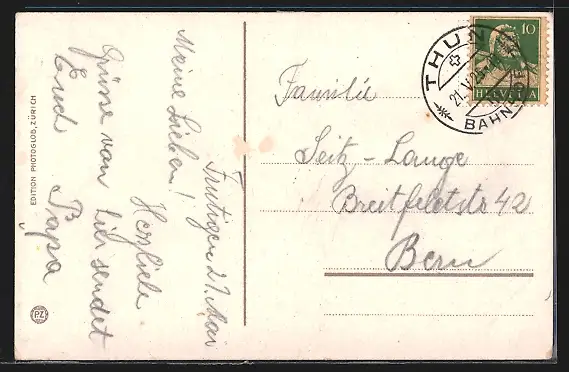 Frutigen 21. Mai
Meine Lieben!
Herzliche
Grüsse von hier sendet
Euch Papa
Familie
Seitz-Lange
Breitfeldstr 42
Bern
THUN
21.V.25
BAHNHOF
10
HELVETIA
EDITION PHOTOGLOB, ZÜRICH
PZ